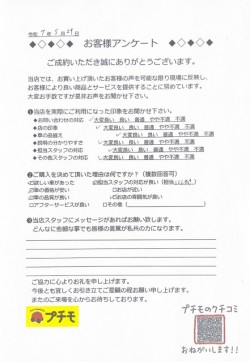 ◆◇◆◇ お客様アンケート ◇◆◇◆
ご成約いただき誠にありがとうございます。
当店では、お買い上げ頂いたお客様の声を可能な限り現場に反映し、
お客様により良い商品とサービスを提供することに努めています。
大変お手数ですが是非お声をお聞かせ下さい。
❶当店を実際にご利用になった印象をお聞かせ下さい。
◆お問い合わせの対応 大変良い 良い 普通 やや不満 不満
◆店の印象 大変良い 良い 普通 やや不満 不満
◆車の品揃え 大変良い 良い 普通 やや不満 不満
◆説明の分かりやすさ 大変良い 良い 普通 やや不満 不満
◆担当スタッフの対応 大変良い 良い 普通 やや不満 不満
◆その他スタッフの対応 大変良い 良い 普通 やや不満 不満
❷ご購入を決めて頂いた理由は何ですか?(複数回答可)
□欲しい車があった
□担当スタッフの対応が良い
□車の価格が安い □お店が近い
□車の品質が良い □お店の雰囲気が良い
□アフターサービスが良い □その他(
❸当店スタッフにメッセージがあればお願い致します。
どんなに些細な事でも皆様の意見が私共の力になります。
ご協力に心よりお礼を申し上げます。
今後とも宜しくお引き立てご愛顧の程お願い申し上げます。
またのご来場を心からお待ちしております。
プチモ
プチモのクチコミ
おねがいします!!